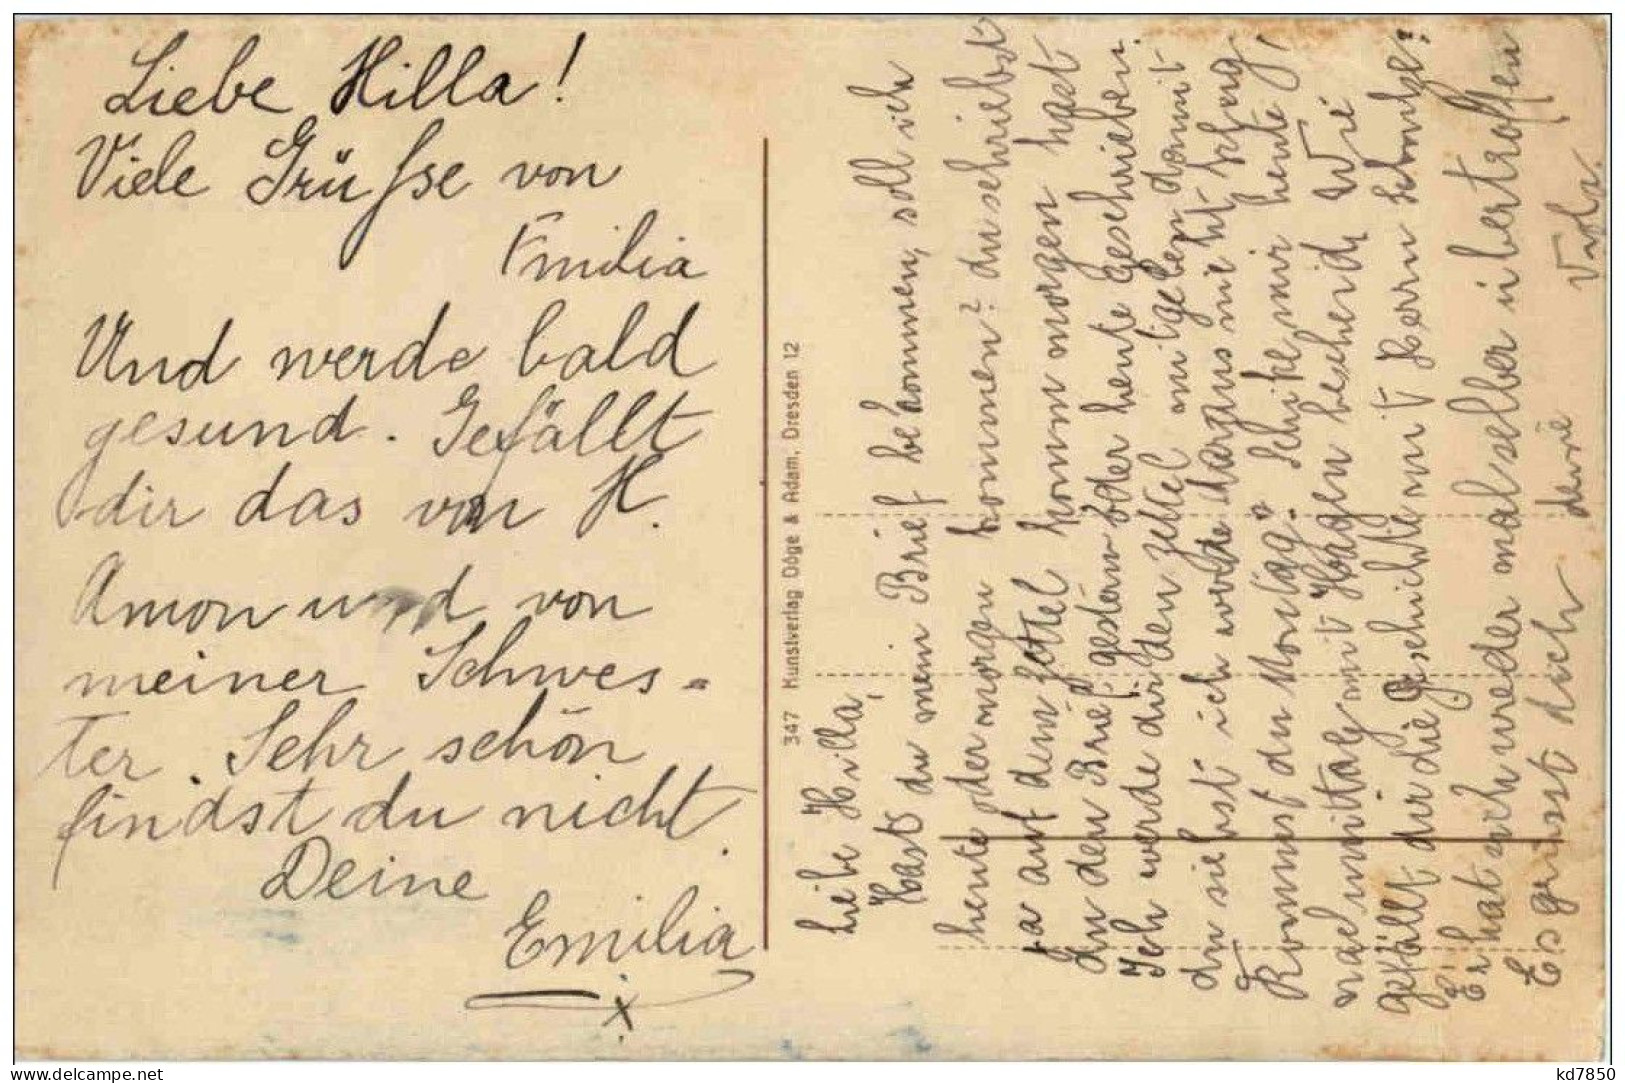 Liebe Hilla!
Viele Grüsse von
Emilia
Und werde bald
gesund. Gefällt
dir das von H.
Amon und von
meiner Schwes-
ter. Sehr schön
findst du nicht.
Deine
Emilia
x
347 Kunstverlag Döge & Adam, Dresden 12
Liebe Hilla,
Hast du mein Brief bekommen, soll ich
heute oder morgen kommen? du schriebst
ja auf dem Zettel komm morgen hast
du den Brief gestern oder heute geschrieben.
Ich werde dir den zettel mitgeben damit
du siehst ich werde daraus nicht schlau
Kommst du Montag? Schike mir heute
nachmittag mit Hagen bescheid, Wie
gefällt dir die Geschichte mit Herrn
Er hat sich wieder mal selber übertroffen
Es grüsst dich deine